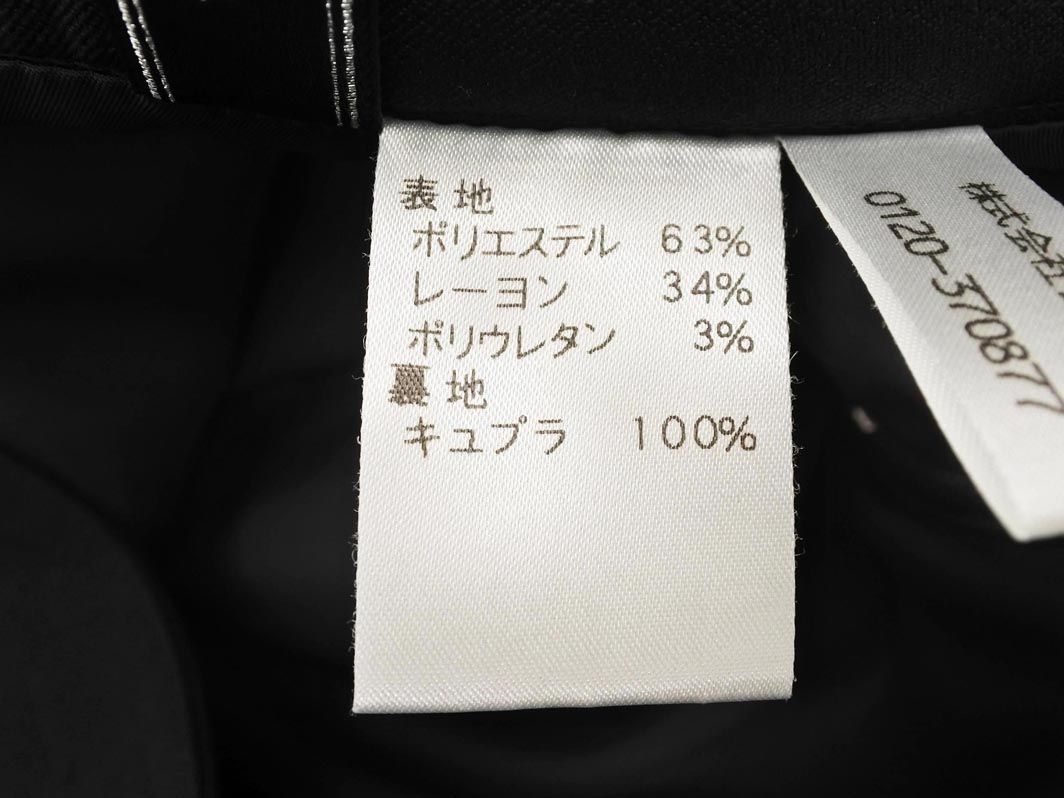 表地
ポリエステル 63%
レーヨン 34%
ポリウレタン 3%
裏地
キュプラ 100%
株式会社
0120-370877